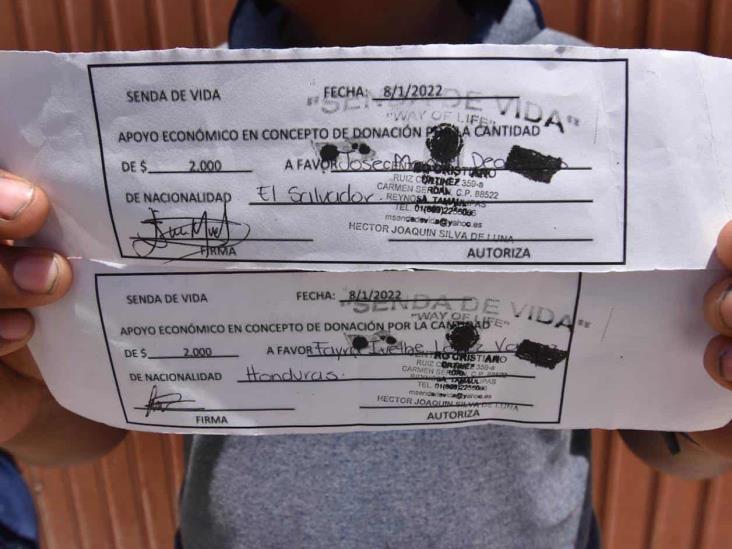 SENDA DE VIDA FECHA: 8/1/2022
"SENDA DE VIDA"
"WAY OF LIFE"
APOYO ECONÓMICO EN CONCEPTO DE DONACIÓN POR LA CANTIDAD
DE $ 2.000 A FAVOR
CRISTIANO
RUIZ CORTINEZ 359-a
CARMEN SERDAN, C.P. 88522
DE NACIONALIDAD El Salvador.
REYNOSA, TAMAULIPAS
msendadevida@yahoo.es
HECTOR JOAQUIN SILVA DE LUNA
FIRMA AUTORIZA
SENDA DE VIDA FECHA: 8/1/2022
"SENDA DE VIDA"
"WAY OF LIFE"
APOYO ECONÓMICO EN CONCEPTO DE DONACIÓN POR LA CANTIDAD
DE $ 2.000 A FAVOR
CENTRO CRISTIANO
RUIZ CORTINEZ 359-a
CARMEN SERDAN, C.P. 88522
DE NACIONALIDAD Honduras.
REYNOSA, TAMAULIPAS
msendadevida@yahoo.es
HECTOR JOAQUIN SILVA DE LUNA
FIRMA AUTORIZA